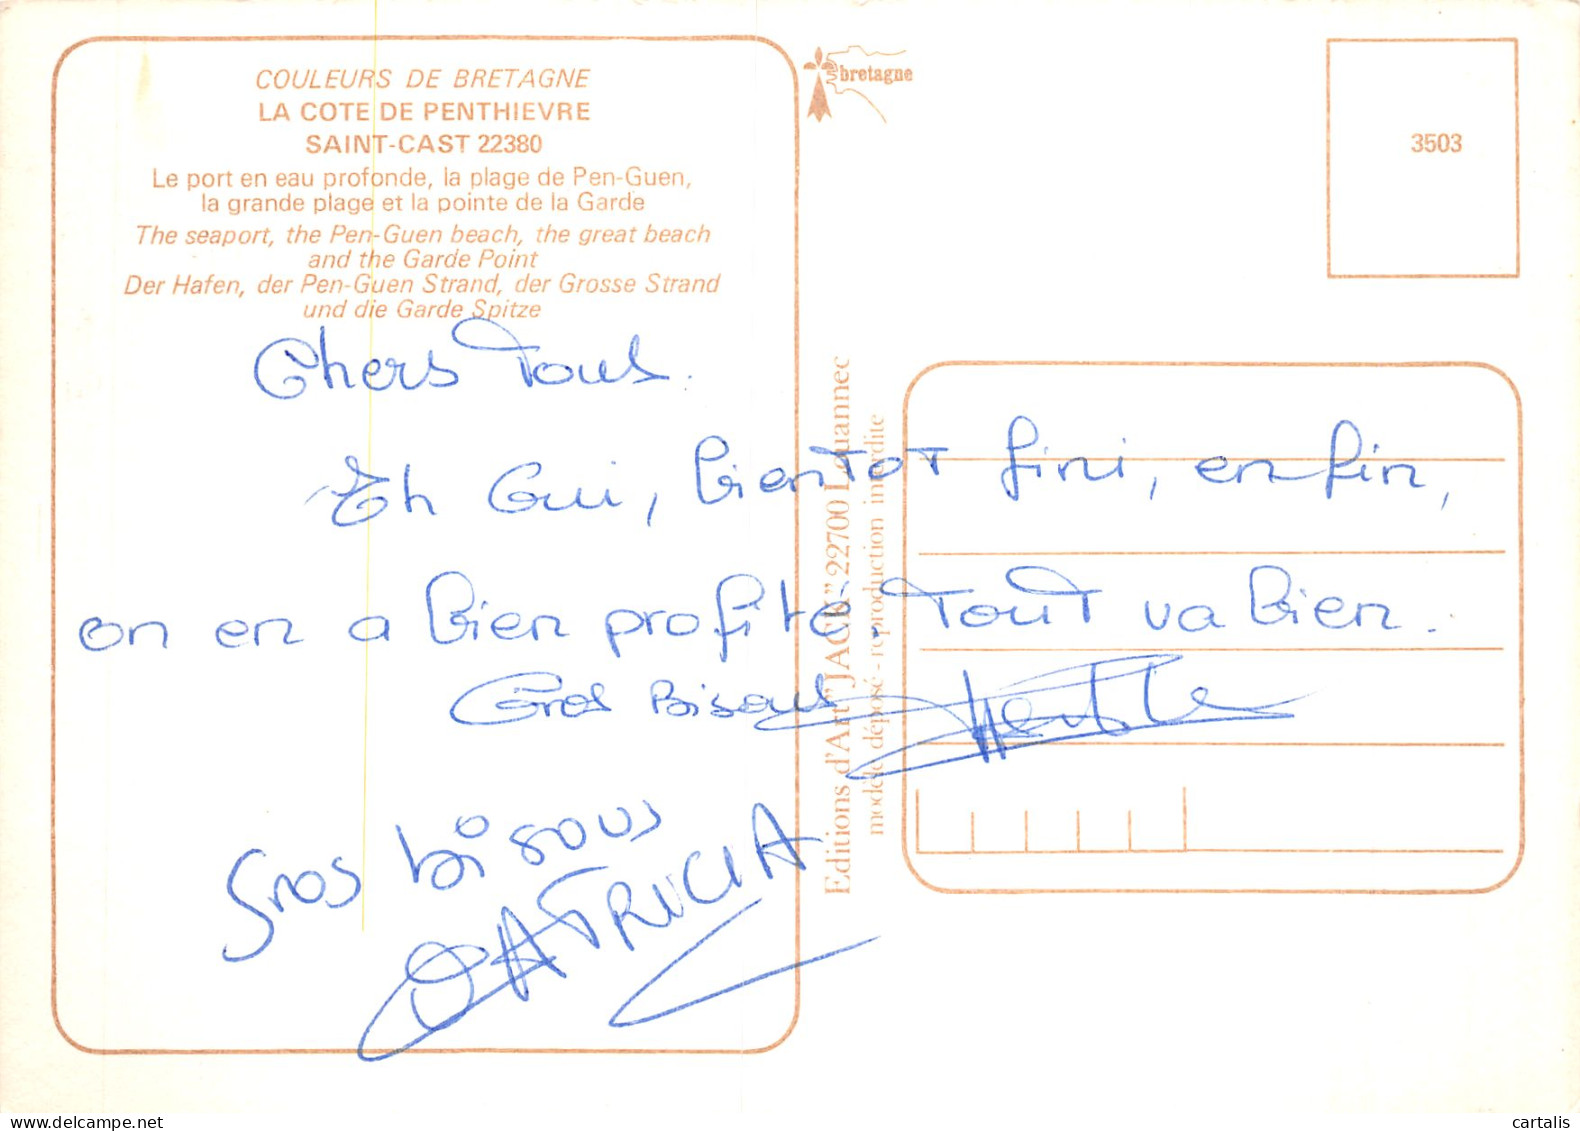 COULEURS DE BRETAGNE
LA COTE DE PENTHIEVRE
SAINT-CAST 22380
Le port en eau profonde, la plage de Pen-Guen,
la grande plage et la pointe de la Garde
The seaport, the Pen-Guen beach, the great beach
and the Garde Point
Der Hafen, der Pen-Guen Strand, der Grosse Strand
und die Garde Spitze
bretagne
3503
Chers Tous.
Eh oui, bientot fini, enfin,
on en a bien profité. Tout va bien.
Gros Bisous
Gros bisous
PATRICIA
Editions d'Art "JACK" 22700 Louannec
modèle déposé - reproduction interdite
delcampe.net
cartalis